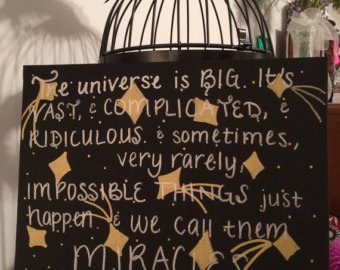 The universe is BIG. It's
VAST, & COMPLICATED, &
RIDICULOUS & sometimes,
very rarely,
IMPOSSIBLE THINGS just
happen & we call them
MIRACLES